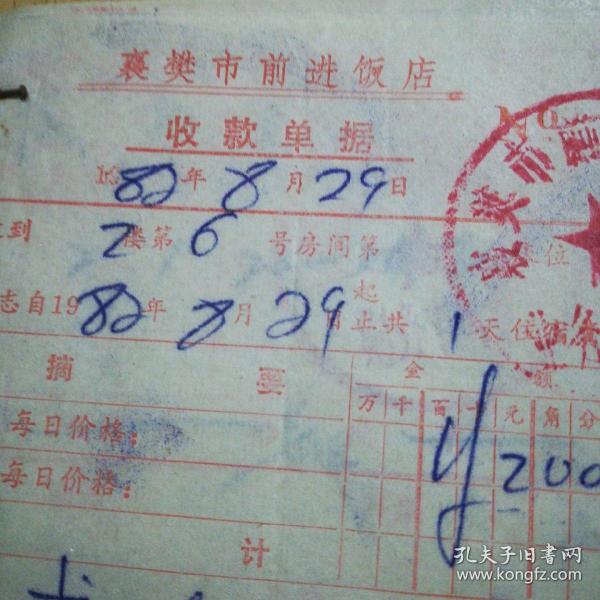 襄樊市前进饭店
收款单据
No
1982年8月29日
到 2楼第6号房间第 位
志自1982年8月29日起止共1天住宿费
摘要 金额
万千百十元角分
每日价格：
每日价格：
¥200
计
襄樊市
孔夫子旧书网
www.kongfz.com